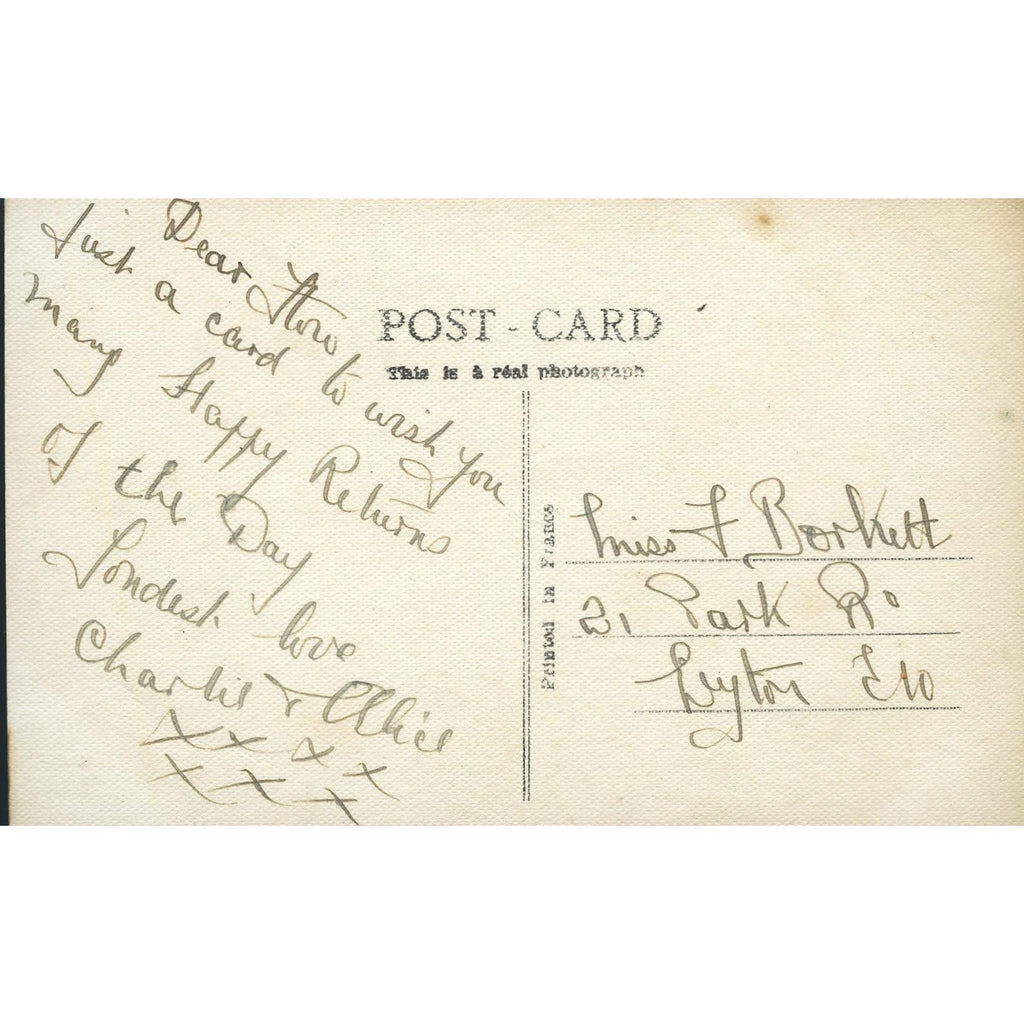 POST-CARD
This is à réal photograph
Printed in France
Dear Flow
Just a card to wish you
many Happy Returns
of the Day
Fondest love
Charlie & Alice
x x x x
x x x
Miss F Borkett
21 Park Rd
Leyton E10